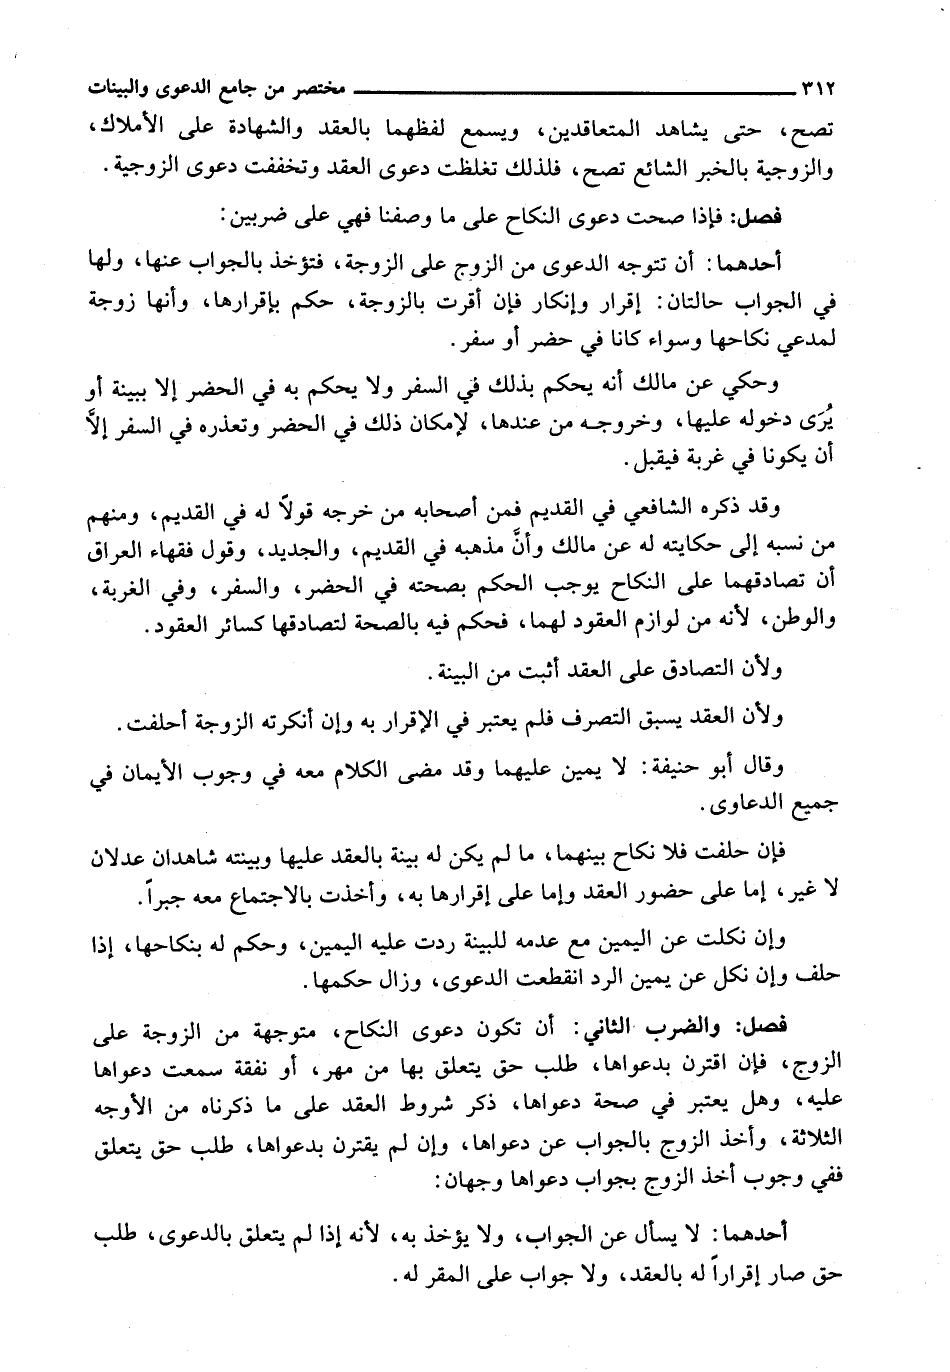 ٣١٢ مختصر من جامع الدعوى والبينات
تصح، حتى يشاهد المتعاقدين، ويسمع لفظهما بالعقد والشهادة على الأملاك،
والزوجية بالخبر الشائع تصح، فلذلك تغلظت دعوى العقد وتخففت دعوى الزوجية.
فصل: فإذا صحت دعوى النكاح على ما وصفنا فهي على ضربين:
أحدهما: أن تتوجه الدعوى من الزوج على الزوجة، فتؤخذ بالجواب عنها، ولها
في الجواب حالتان: إقرار وإنكار فإن أقرت بالزوجة، حكم بإقرارها، وأنها زوجة
لمدعي نكاحها وسواء كانا في حضر أو سفر.
وحكي عن مالك أنه يحكم بذلك في السفر ولا يحكم به في الحضر إلا ببينة أو
يُرَى دخوله عليها، وخروجه من عندها، لإمكان ذلك في الحضر وتعذره في السفر إلاَّ
أن يكونا في غربة فيقبل.
وقد ذكره الشافعي في القديم فمن أصحابه من خرجه قولاً له في القديم، ومنهم
من نسبه إلى حكايته له عن مالك وأنَّ مذهبه في القديم، والجديد، وقول فقهاء العراق
أن تصادقهما على النكاح يوجب الحكم بصحته في الحضر، والسفر، وفي الغربة،
والوطن، لأنه من لوازم العقود لهما، فحكم فيه بالصحة لتصادقها كسائر العقود.
ولأن التصادق على العقد أثبت من البينة.
ولأن العقد يسبق التصرف فلم يعتبر في الإقرار به وإن أنكرته الزوجة أحلفت.
وقال أبو حنيفة: لا يمين عليهما وقد مضى الكلام معه في وجوب الأيمان في
جميع الدعاوى.
فإن حلفت فلا نكاح بينهما، ما لم يكن له بينة بالعقد عليها وبينته شاهدان عدلان
لا غير، إما على حضور العقد وإما على إقرارها به، وأخذت بالاجتماع معه جبراً.
وإن نكلت عن اليمين مع عدمه للبينة ردت عليه اليمين، وحكم له بنكاحها، إذا
حلف وإن نكل عن يمين الرد انقطعت الدعوى، وزال حكمها.
فصل: والضرب الثاني: أن تكون دعوى النكاح، متوجهة من الزوجة على
الزوج، فإن اقترن بدعواها، طلب حق يتعلق بها من مهر، أو نفقة سمعت دعواها
عليه، وهل يعتبر في صحة دعواها، ذكر شروط العقد على ما ذكرناه من الأوجه
الثلاثة، وأخذ الزوج بالجواب عن دعواها، وإن لم يقترن بدعواها، طلب حق يتعلق
ففي وجوب أخذ الزوج بجواب دعواها وجهان:
أحدهما: لا يسأل عن الجواب، ولا يؤخذ به، لأنه إذا لم يتعلق بالدعوى، طلب
حق صار إقراراً له بالعقد، ولا جواب على المقر له.